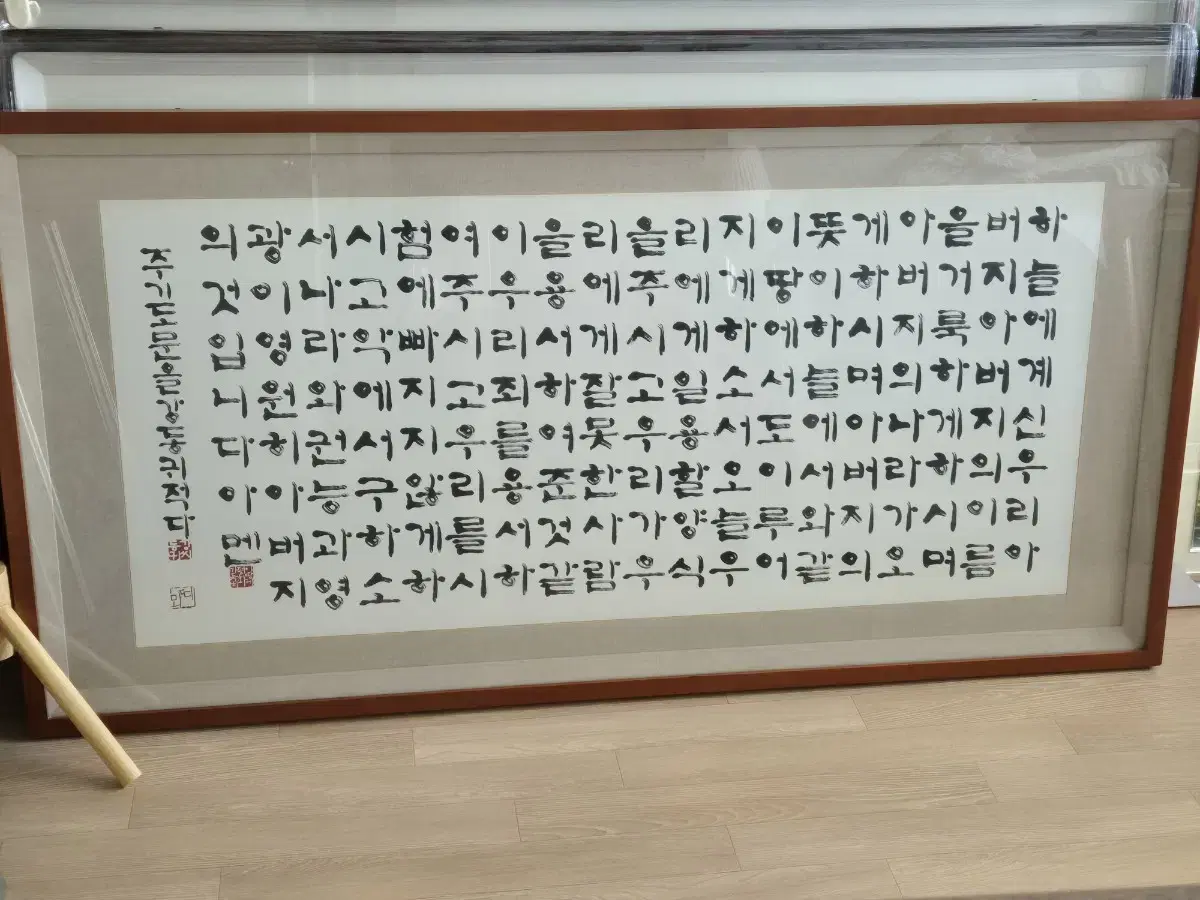 하늘에계신우리아
버지아버지의이름
을거룩하게하시며
아버지의나라가오
게하시며아버지의
뜻이하늘에서와같
이땅에서도이루어
지게하소서오늘우
리에게일용할양식
을주시고우리가우
리에게잘못한사람
을용서하여준것같
이우리죄를용서하
여주시고우리를시
험에빠지지않게하
시고악에서구하소
서나라와권능과영
광이영원히아버지
의것입니다아멘
주기도문 적다